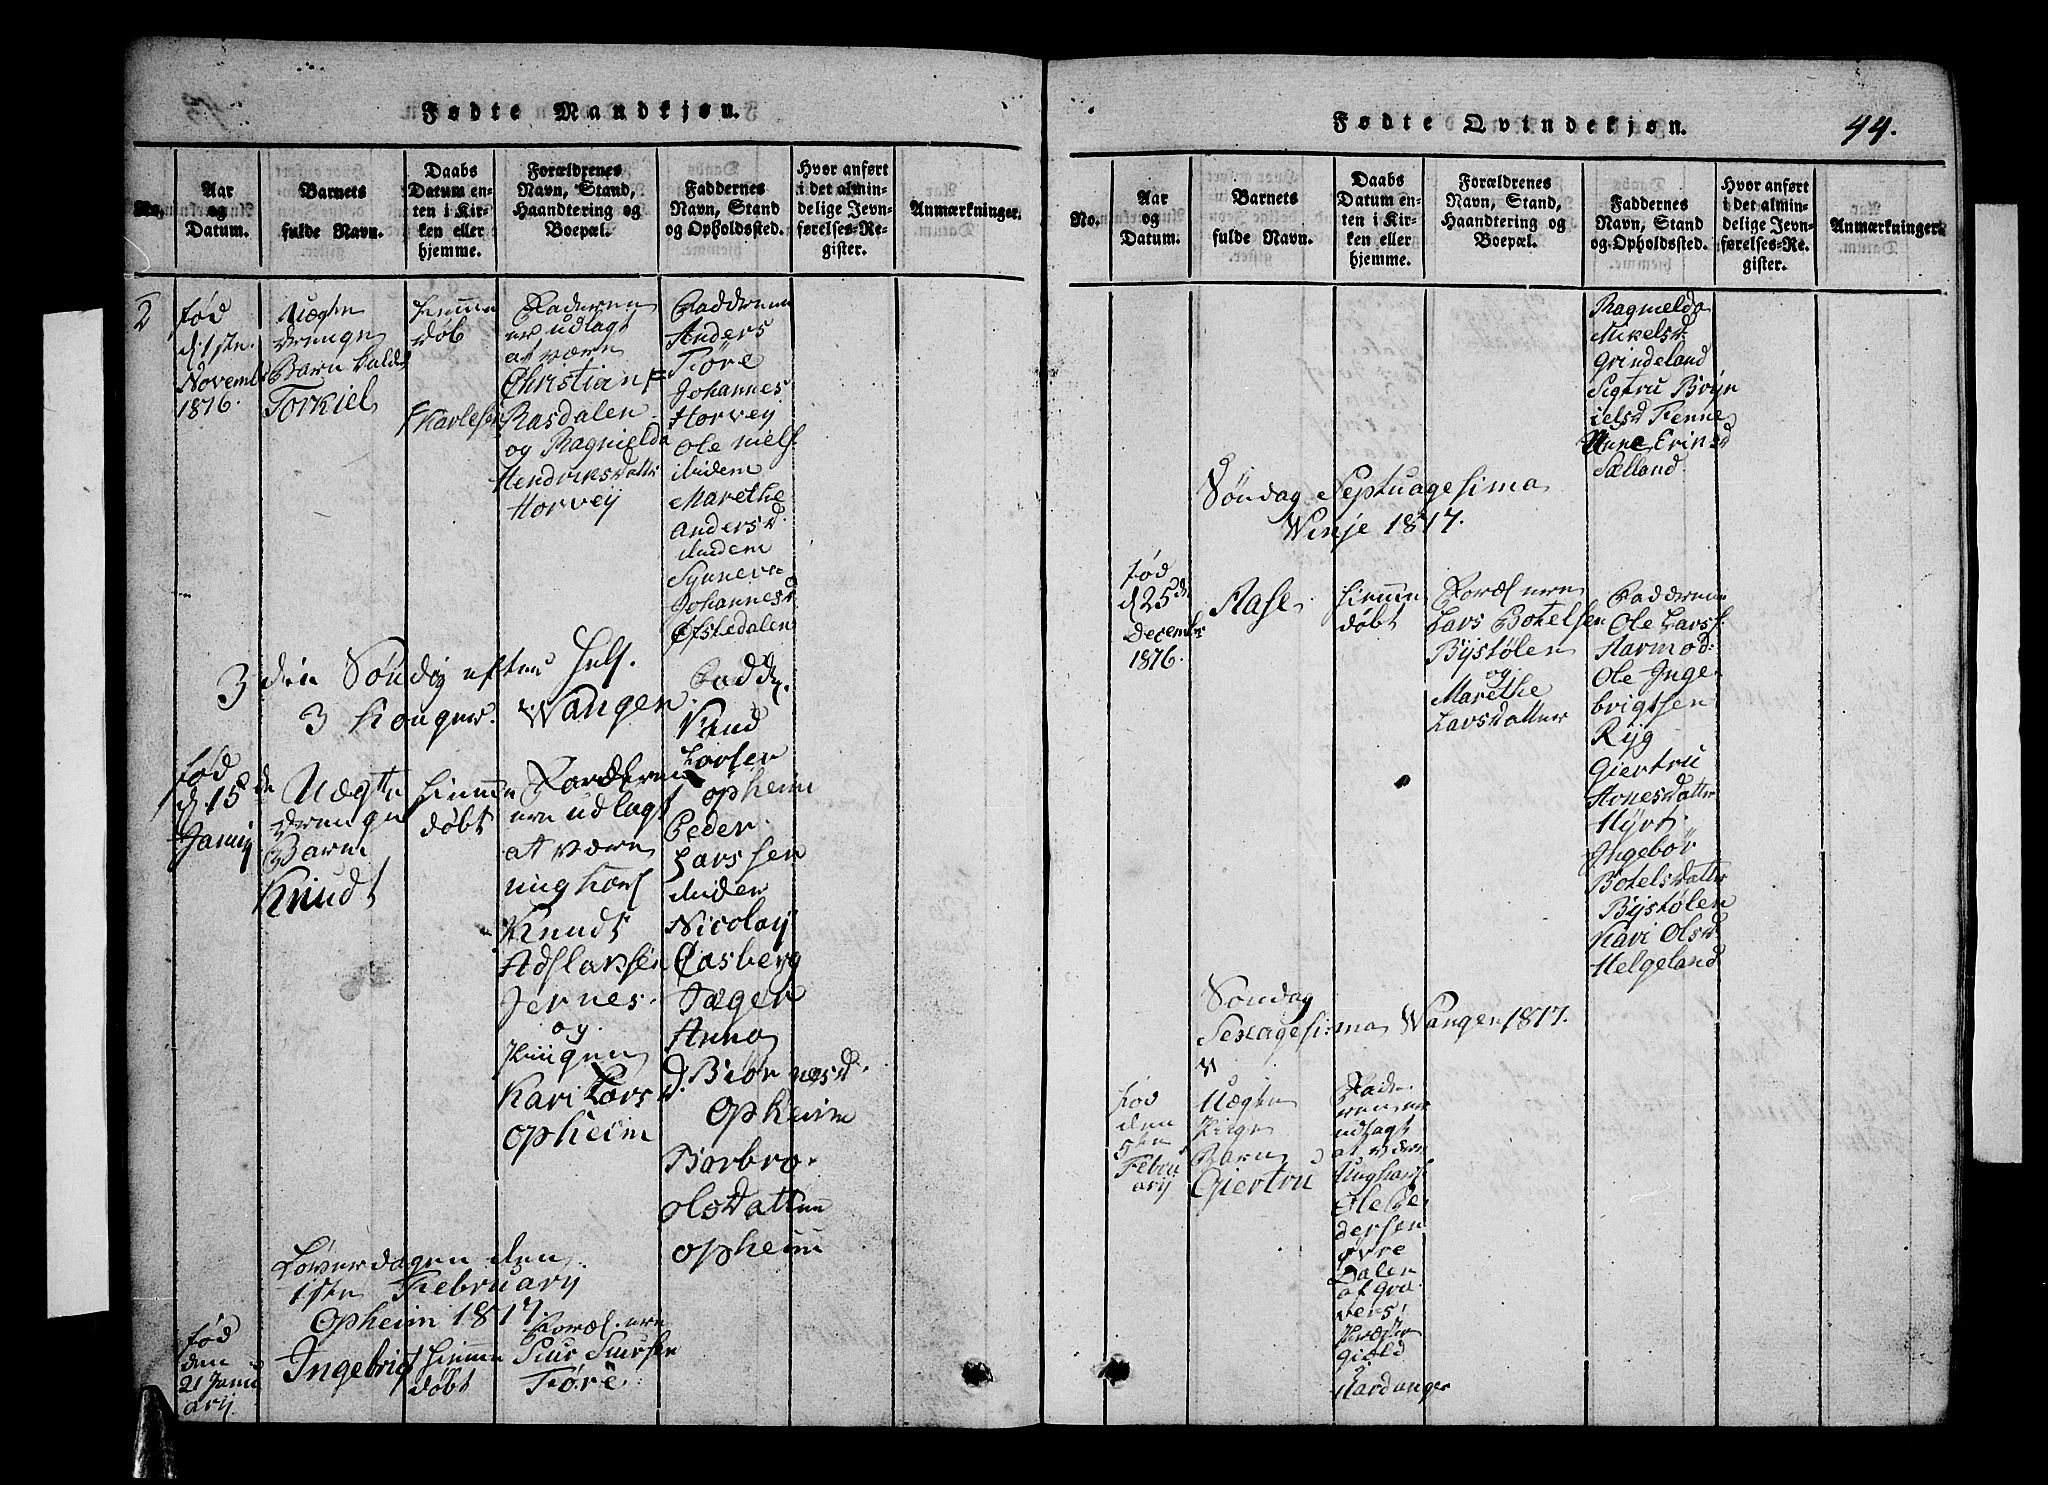 Fødte Mandkjøn.
No.
Aar
og
Datum.
Barnets
fulde Navn.
Daabs
Datum en-
ten i Kir-
ken eller
hjemme.
Forældrenes
Navn, Stand,
Haandtering og
Boepæl.
Faddernes
Navn, Stand
og Opholdssted.
Hvor anført
i det almin-
delige Jevn-
førelses-Re-
gister.
Anmærkninger.
2
fød
d. 1ste
Novembr
1816.
Uægte
drenge
Barn kaldet
Torkiel
hiemme
døb
Faderen
er udlagt
at være
Christian
Rasdalen
og Ragnielda
Hendriksdatter
Horvey
Fadderene
Anders
Føre
Johannes
Horvey
Ole Niels
ibidem
Marethe
Andersd.
ibidem
Synneva
Johannesd
Øfstedalen
3 die Søndag efter Hels.
3 Konger. Wangen.
fød
d. 15de
Januarij
Uægte
drenge
Barn
Knudt
hiemme
døbt
Forældrene
ere udlagt
at være
ungkarl
Knudt
Adslaksen
Jernes.
og
Pigen
Kari Lars d.
Opheim
Fadd.
Knud
Larsen
Opheim
Peder
Larssen
ibidem
Nicolay
Casberg
Jæger
Anna
Biørnesd.
Opheim
Barbro
Olsdatter
Opheim
Løverdagen den
1ste February
Opheim 1817.
fød
den
21 Janu
ary.
Ingebrigt
hiemme
døbt
Forældrene
Siur Siursen
Føre
Fødte Qvindekjøn.
44.
No.
Aar
og
Datum.
Barnets
fulde Navn.
Daabs
Datum en-
ten i Kir-
ken eller
hjemme.
Forældrenes
Navn, Stand,
Haandtering og
Boepæl.
Faddernes
Navn, Stand
og Opholdssted.
Hvor anført
i det almin-
delige Jevn-
førelses-Re-
gister.
Anmærkninger.
Ragnielda
Mikelsd
Grindeland
Sigtru Bryn
ielsd Fenne
Anne Erinsd
Sælland.
Søndag Septuagesima
Winje 1817.
fød
d 25de
December
1816.
Aase
hiemme
døbt
Forældrene
Lars Botelsen
Bystølen
og
Marethe
Larsdatter
Fadderene
Ole Larss.
Aarmod
Ole Inge
brigtsen
Ryg
Giertru
Aonesdatter
Myrk
Ingebør
Botelsdatter
Bystølen
Kari Olsd
Helgeland
Søndag
Sexagesima Wangen 1817.
fød
den
5te
Febru
ary
Uægte
Pige
Barn
Giertru
Fade
ren er
udlagt
at være
Ungkarl
Ole Pe
dersen
øvre
Dalen
af Gra
vens
Præste
gield
i
Hardanger